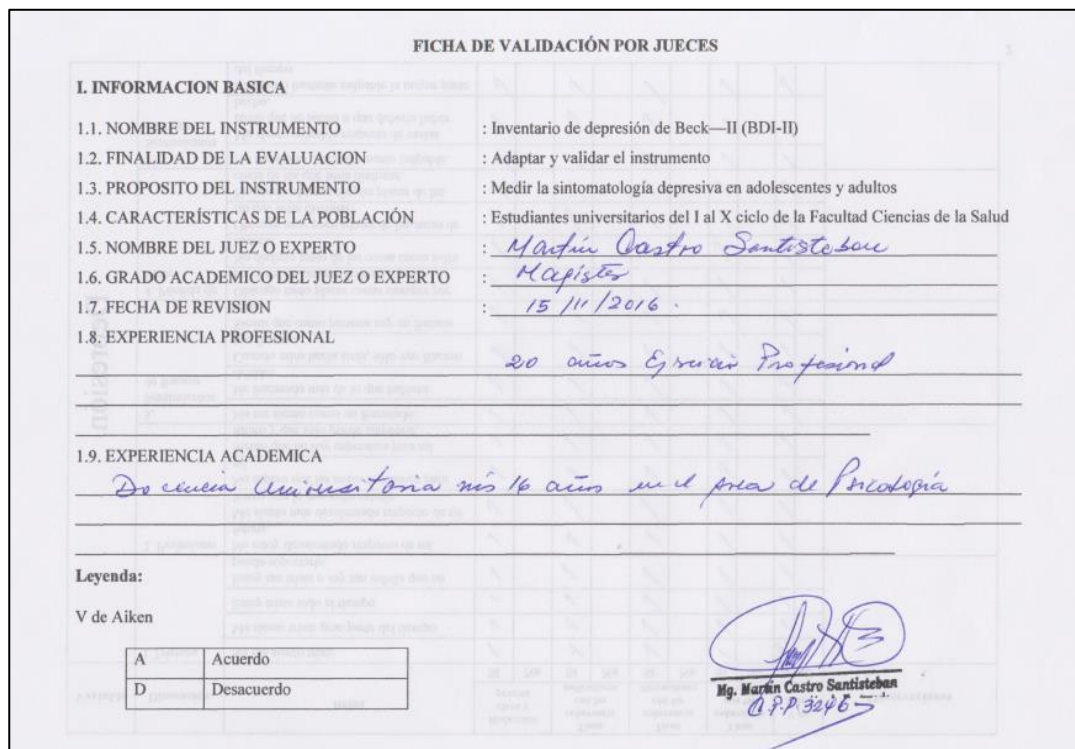 FICHA DE VALIDACIÓN POR JUECES
I. INFORMACION BASICA
1.1. NOMBRE DEL INSTRUMENTO : Inventario de depresión de Beck—II (BDI-II)
1.2. FINALIDAD DE LA EVALUACION : Adaptar y validar el instrumento
1.3. PROPOSITO DEL INSTRUMENTO : Medir la sintomatología depresiva en adolescentes y adultos
1.4. CARACTERÍSTICAS DE LA POBLACIÓN : Estudiantes universitarios del I al X ciclo de la Facultad Ciencias de la Salud
1.5. NOMBRE DEL JUEZ O EXPERTO : Martín Castro Santisteban
1.6. GRADO ACADEMICO DEL JUEZ O EXPERTO : Magíster
1.7. FECHA DE REVISION : 15/11/2016.
1.8. EXPERIENCIA PROFESIONAL
20 años Ejercicio Profesional
1.9. EXPERIENCIA ACADEMICA
Docencia Universitaria más 16 años en el área de Psicología
Leyenda:
V de Aiken
A Acuerdo
D Desacuerdo
Mg. Martín Castro Santisteban
C.P.P. 3246